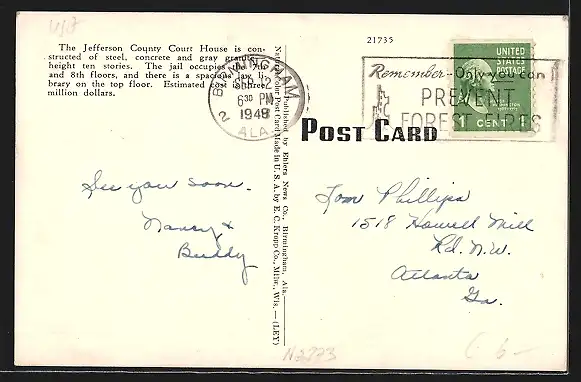 The Jefferson County Court House is con-
structed of steel, concrete and gray granite,
height ten stories. The jail occupies the 7th
and 8th floors, and there is a spacious law li-
brary on the top floor. Estimated cost is three
million dollars.
BIRMINGHAM
2
6 30 PM
1949
ALA.
21735
Remember - Only you can
PREVENT
FOREST FIRES
UNITED
STATES
POSTAGE
WASHINGTON
1 CENT 1
POST CARD
Published by Ehlers News Co., Birmingham, Ala.
Natural Color Post Card Made in U. S. A. by E. C. Kropp Co., Milw., Wis. — (LEY)
See you soon.
Nancy &
Buddy
Tom Phillips
1518 Howell Mill
Rd. N.W.
Atlanta
Ga.
N2773
6-